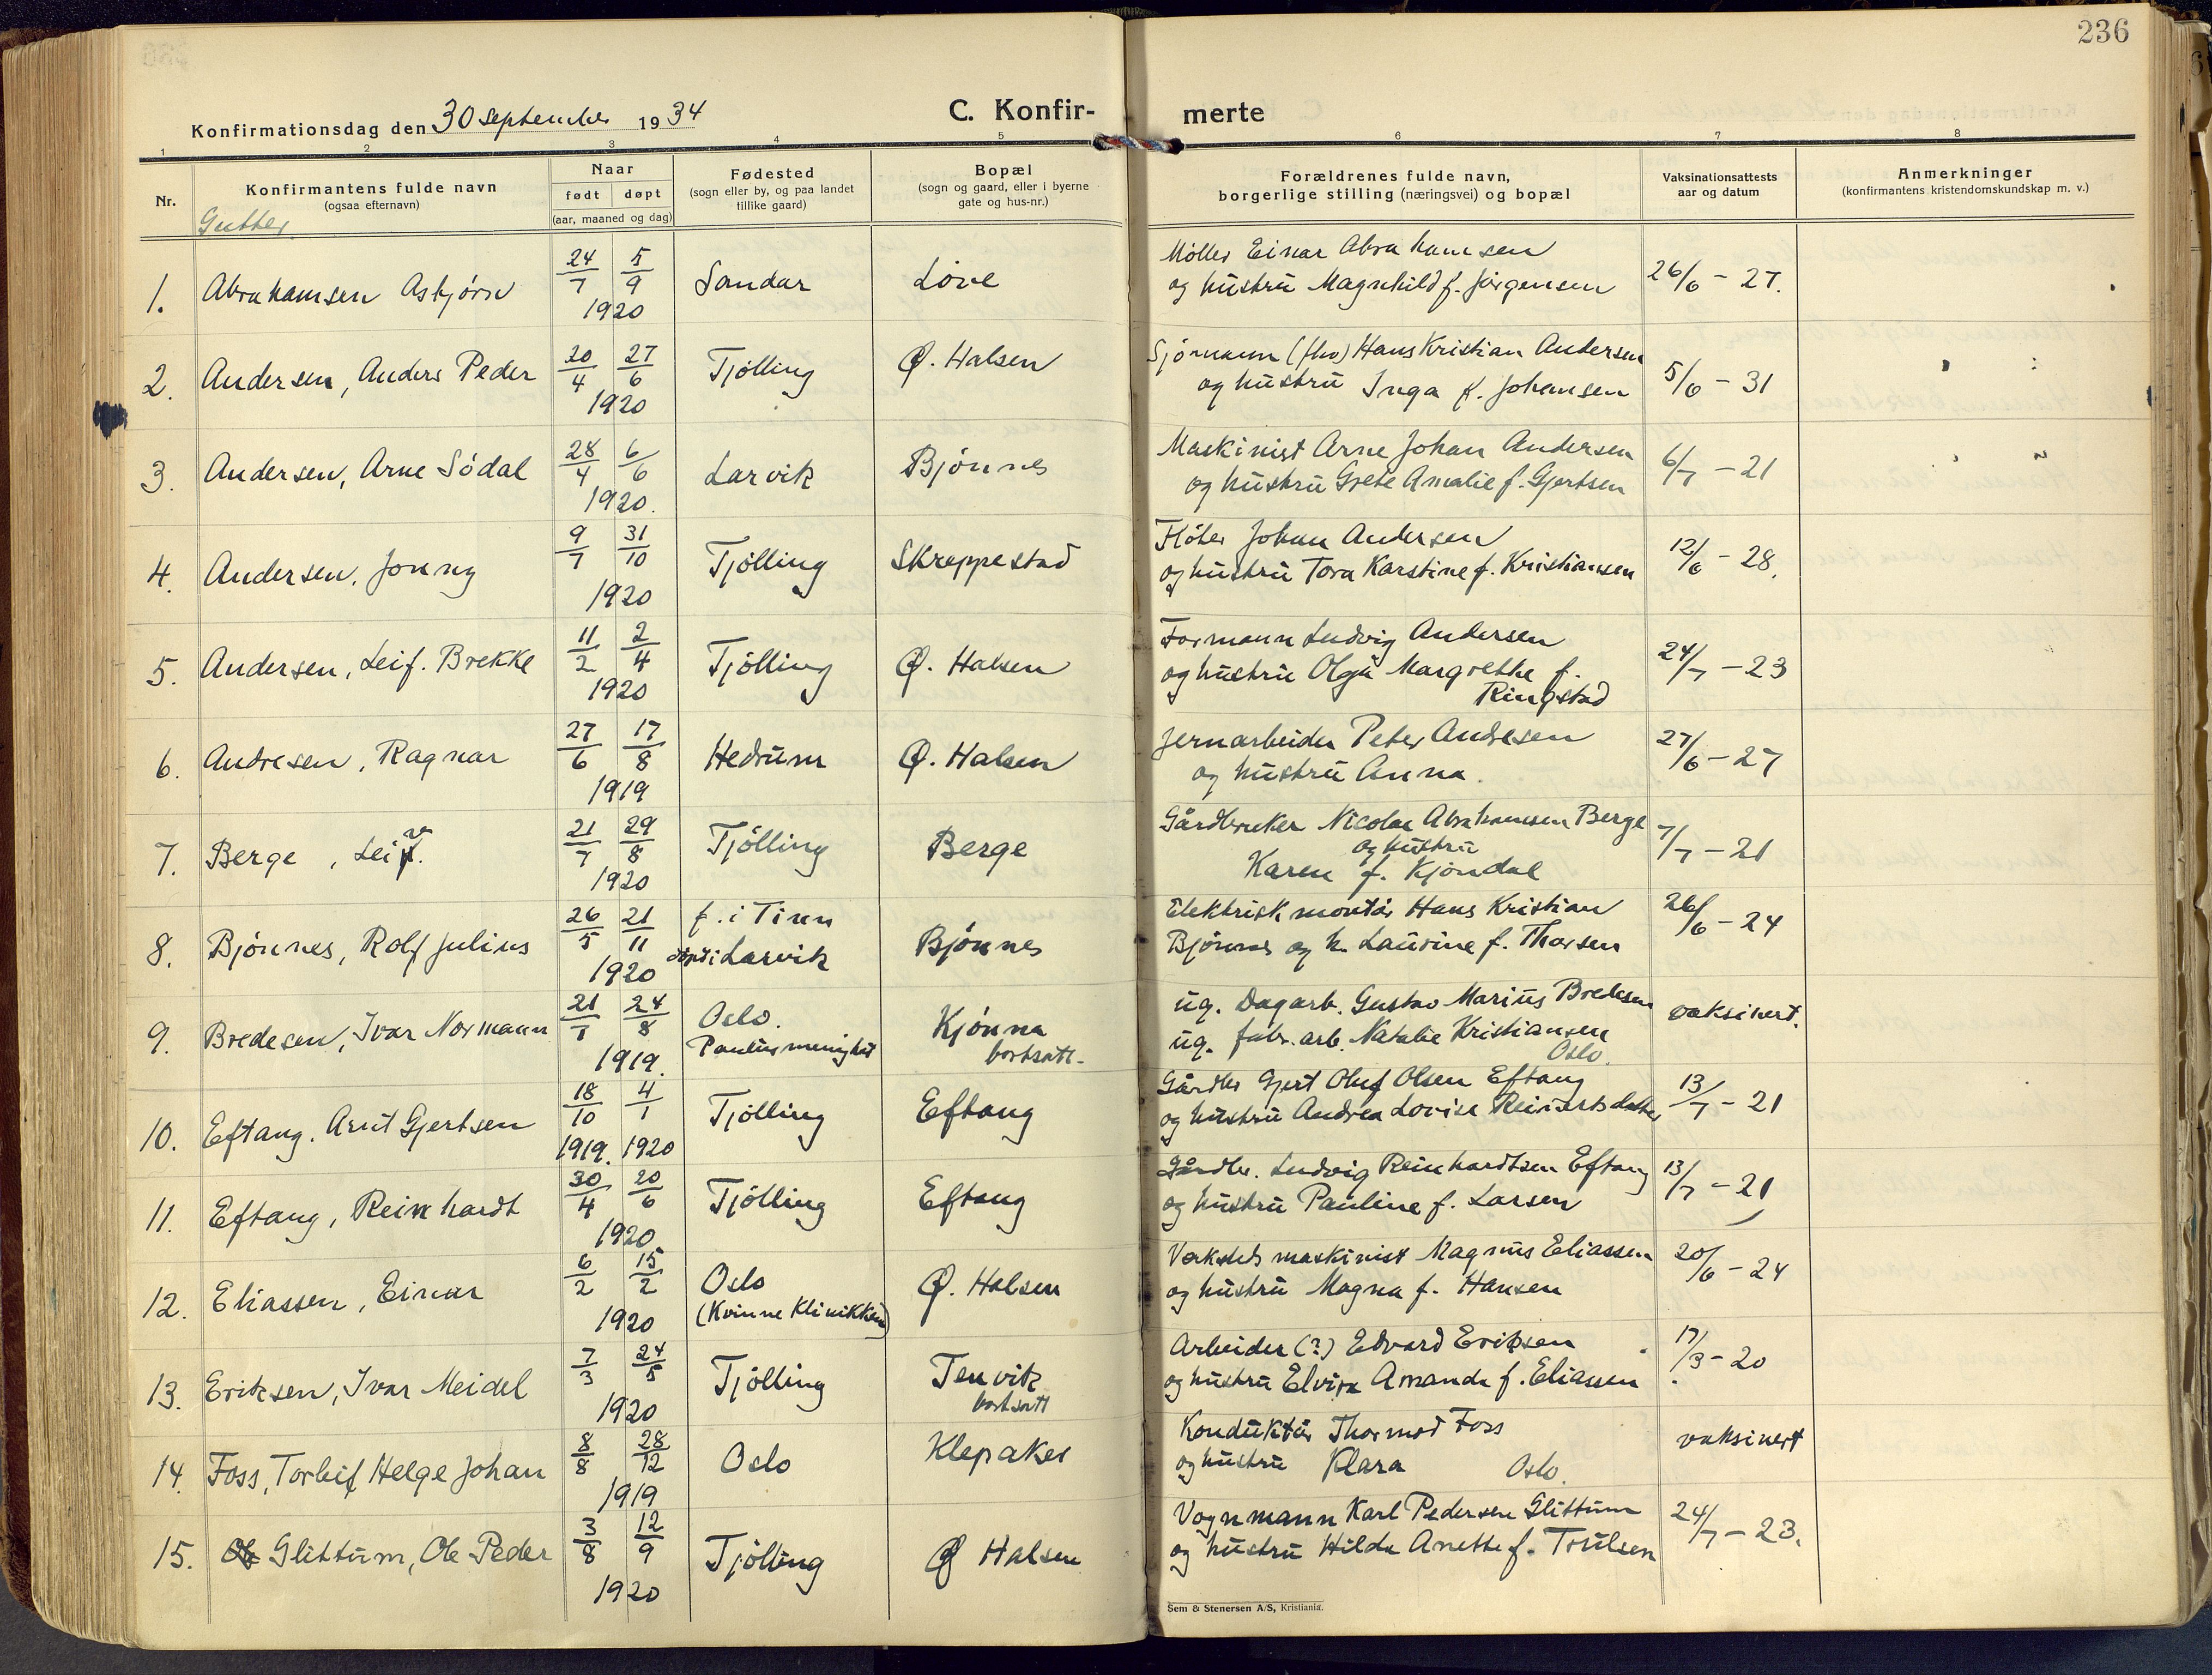 236
Konfirmationsdag den 30 september 1934
C. Konfir-
merte
1 2 3 4 5 6 7 8
Nr.
Konfirmantens fulde navn
(ogsaa efternavn)
Gutter
Naar
født døpt
(aar, maaned og dag)
Fødested
(sogn eller by, og paa landet
tillike gaard)
Bopæl
(sogn og gaard, eller i byerne
gate og hus-nr.)
Forældrenes fulde navn,
borgerlige stilling (næringsvei) og bopæl
Vaksinationsattests
aar og datum
Anmerkninger
(konfirmantens kristendomskundskap m. v.)
1. Abrahamsen Asbjørn 24/7 5/9 1920 Sandar Løve
Møller Einar Abrahamsen
og hustru Magnhild f. Jørgensen 26/6 - 27.
2. Andersen, Anders Peder 20/4 27/6 1920 Tjølling Ø. Halsen
Sjømann (fhv) Hans Kristian Andersen
og hustru Inga f. Johansen 5/6 - 31
3. Andersen, Arne Sødal 28/4 6/6 1920. Larvik Bjønnes
Maskinist Arne Johan Andersen
og hustru Grete Amalie f. Gjertsen 6/7 - 21
4. Andersen, Jonny 9/7 31/10 1920 Tjølling Skreppestad
Fløter Johan Andersen
og hustru Tora Karstine f. Kristiansen 12/6 - 28.
5. Andersen, Leif. Brekke 11/2 2/4 1920 Tjølling Ø. Halsen
Formann Ludvig Andersen
og hustru Olga Margrethe f.
Ringstad 24/7 - 23
6. Andresen, Ragnar 27/6 17/8 1919 Hedrum Ø. Halsen
Jernarbeider Peter Andresen
og hustru Anna. 27/6 - 27
7. Berge, Leiv. 21/7 29/8 1920 Tjølling Berge
Gårdbruker Nicolai Abrahamsen Berge
og hustru
Karen f. Kjøndal 7/7 - 21
8. Bjønnes, Rolf Julius 26/5 21/11 1920 f. i Tinn
døpt i Larvik Bjønnes
Elektrisk montør Hans Kristian
Bjønnes og h. Laurine f. Thorsen 26/6 - 24
9. Bredesen, Ivar Normann 21/7 24/8 1919. Oslo.
Paulus menighet Kjønna
bortsatt.
ug. Dagarb. Gustav Marius Bredesen
ug. fabr. arb. Natalie Kristiansen
Oslo. vaksinert.
10. Eftang. Arnt Gjertsen 18/10 1919. 4/1 1920 Tjølling Eftang
Gårdbr Gjert Oluf Olsen Eftang
og hustru Andrea Lovise Reinertsdatter 13/7 - 21
11. Eftang, Reinhardt 30/4 20/6 1920 Tjølling Eftang
Gårdbr. Ludvig Reinhardtsen Eftang
og hustru Pauline f. Larsen 13/7 - 21
12. Eliassen, Einar 6/2 15/2 1920 Oslo
(Kvinne Klinikken) Ø. Halsen
Verksteds maskinist Magnus Eliassen
og hustru Magna f. Hansen 20/6 - 24
13. Eriksen, Ivar Meidel 7/3 24/5 1920 Tjølling Tenvik
bortsatt
Arbeider (?) Edvard Eriksen
og hustru Elvira Amanda f. Eliassen 17/3 - 20
14. Foss, Torleif Helge Johan 8/8 28/12 1919 Oslo Klepaker
Konduktør Thormod Foss
og hustru Klara Oslo. vaksinert
15. Glittum, Ole Peder 3/8 12/9 1920 Tjølling Ø Halsen
Vognmann Karl Pedersen Glittum
og hustru Hilda Anette f. Trulsen 24/7 - 23.
Sem & Stenersen A/S, Kristiania.